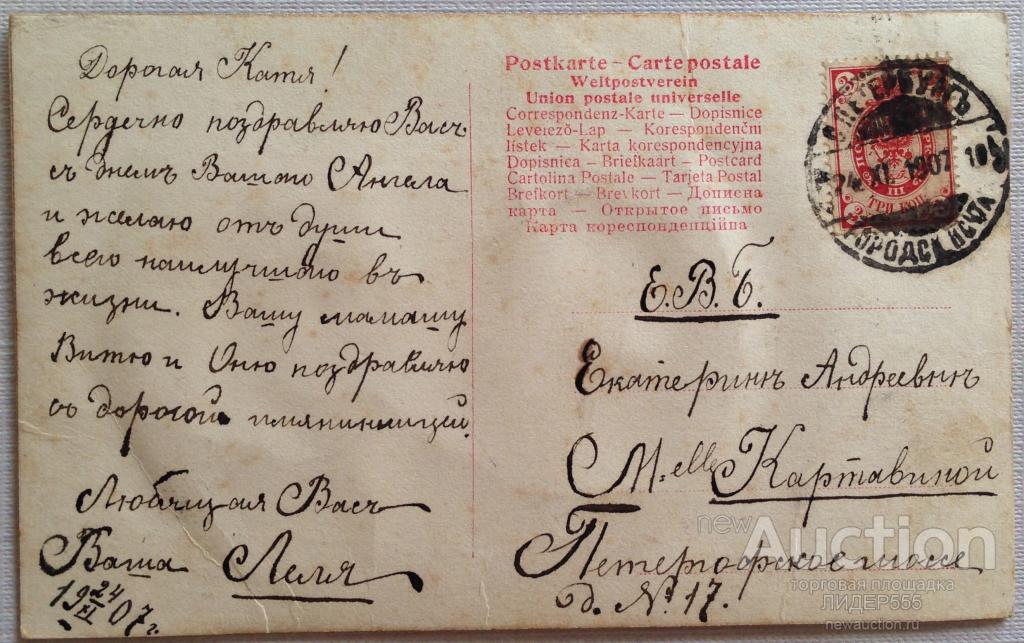 Дорогая Катя!
Сердечно поздравляю Васъ
съ днемъ Вашего Ангела
и желаю отъ души
всего наилучшаго въ
жизни. Вашу мамашу
Витю и Оню поздравляю
съ дорогой имянинницей.
Любящая Васъ
Ваша Леля
19 24/XI 07 г.
Postkarte – Carte postale
Weltpostverein
Union postale universelle
Correspondenz-Karte — Dopisnice
Levelező-Lap — Korespondenční
lístek — Karta korespondencyjna
Dopisnica — Briefkaart — Postcard
Cartolina Postale — Tarjeta Postal
Brefkort — Brevkort — Дописна
карта — Открытое письмо
Карта кореспонденційна
Е.В.Б.
Екатеринѣ Андреевнѣ
M.elle Картавиной
Петергофское шоссе
д. № 17.
С.ПЕТЕРБУРГЪ
24 XI 1907
ГОРОДСК ПОЧТА
III
ТРИ КОП
newAuction
торговая площадка
ЛИДЕР555
newauction.ru